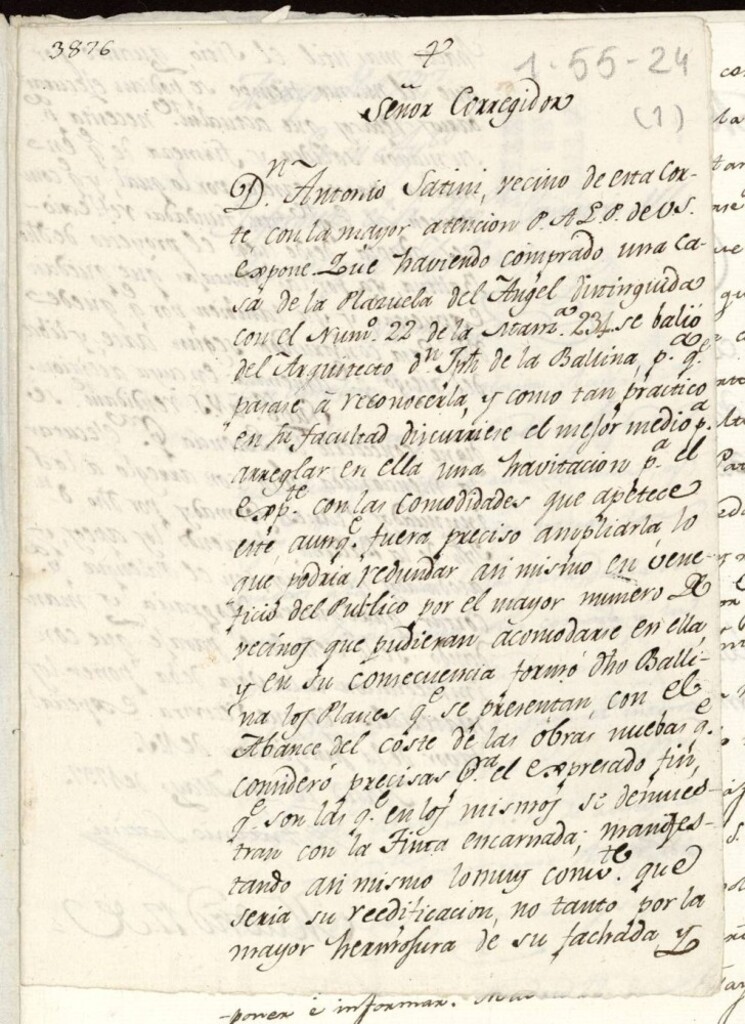 3876
1-55-24
(1)
Señor Corregidor
Dn. Antonio Satini, vecino de esta Cor-
te, con la mayor atencion P. A L. P. de VS.
expone. Que haviendo comprado una Ca-
sa de la Plazuela del Angel distinguida
con el Num.º 22 de la Manz.ª 234. se balió
del Arquitecto dn. Jph de la Ballina, p.ª q.e
pasase á reconocerla, y como tan práctico
en su facultad discurriese el mejor medio p.ª
arreglar en ella una havitacion p.ª el
Exp.te con las Comodidades que apetece
este, aunq.e fuera preciso ampliarla, lo
que podria redundar asi mismo en vene-
ficio del Publico por el mayor numero de
vecinos que pudieran acomodarse en ella,
y en su consecuencia formó dho Balli-
na los Planes q.e se presentan, con el
Abance del coste de las obras nuebas q.e
consideró precisas p.ra el expresado fin,
q.e son las q.e en los mismos se demues-
tran con la Tinta encarnada; manifes-
tando asi mismo lo muy comv.te que
seria su reedificacion, no tanto por la
mayor hermosura de su fachada y
poner e informar.